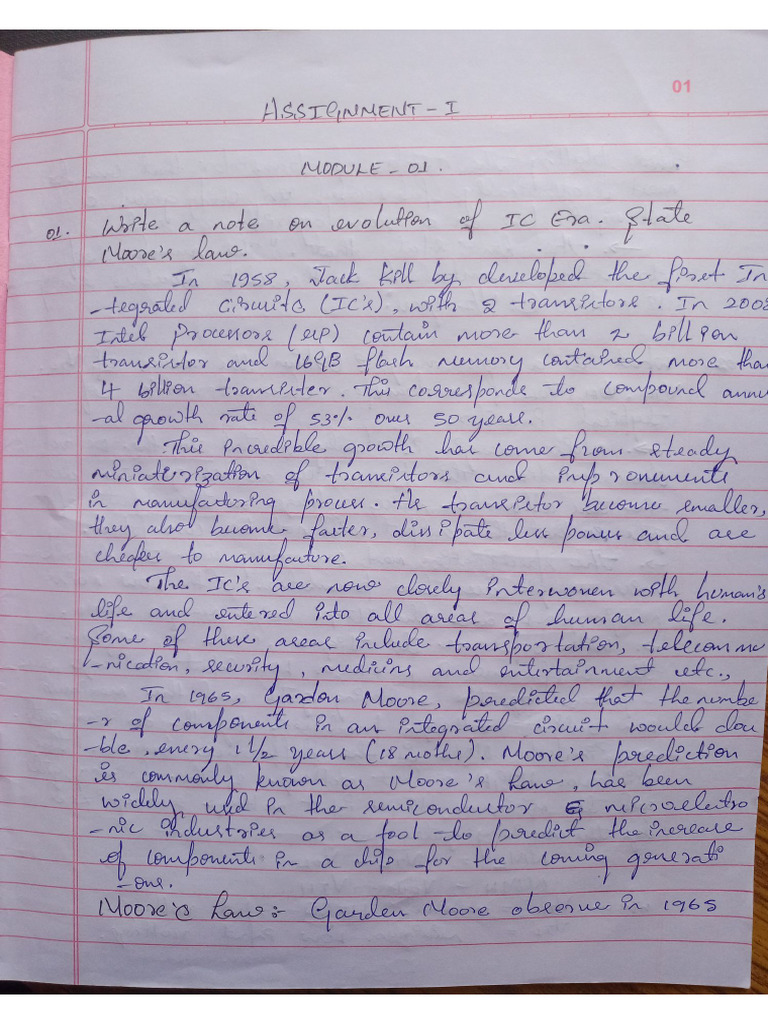 01
ASSIGNMENT - I
MODULE - 01.
01. Write a note on evolution of IC Era. State
Moore's law.
In 1958, Jack Kill by developed the first In
-tegrated Circuits (IC's), with 2 transistors. In 2008
Intel Processors (up) contain more than 2 billion
transistor and 16GB flash memory contained more than
4 billion transister. This corresponds to compound annu
-al growth rate of 53% over 50 years.
This incredible growth has come from steady
miniaturization of transistors and improvements
in manufacturing process. As transistor become smaller,
they also become faster, dissipate less power and are
cheaper to manufacture.
The IC's are now closely interwoven with human's
life and entered into all areas of human life.
Some of these areas include transportation, telecommu
-nication, security, medicins and entertainment etc.,
In 1965, Gardon Moore, predicted that the numbe
-r of components in an integrated circuit would dou
-ble, every 1 1/2 years (18 moths). Moore's prediction
is commonly known as Moore's Law, has been
widely used in the semiconductor & microelectro
-nic industries as a tool to predict the increase
of components in a chip for the coming generati
-ons.
Moore's Law:- Garden Moore observe in 1965